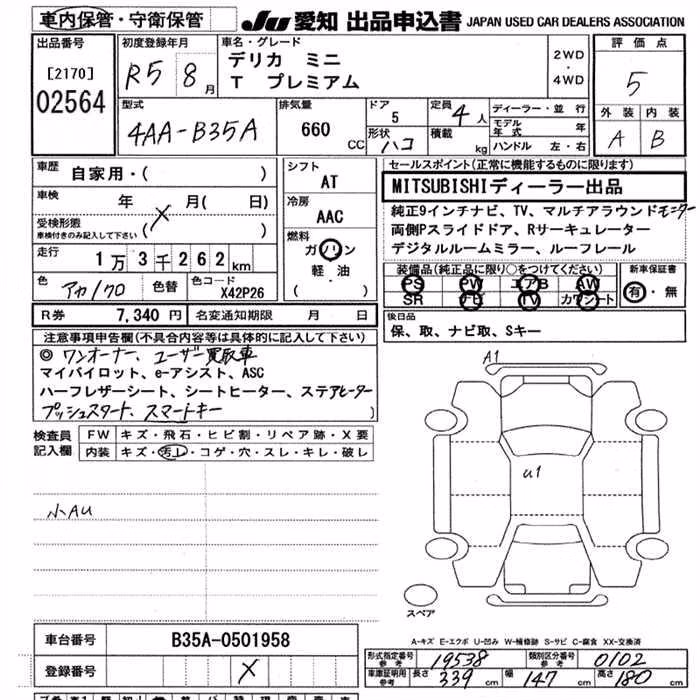 車内保管・守衛保管
JU 愛知 出品申込書 JAPAN USED CAR DEALERS ASSOCIATION
出品番号
[2170]
02564
初度登録年月
R5 8月
車名・グレード
デリカ ミニ
T プレミアム
2WD
・
4WD
評価点
5
外装 内装
A B
型式
4AA-B35A
排気量
660
CC
ドア
5
形状
ハコ
定員
4人
積載
kg
ディーラー・並行
モデル年式 年
ハンドル 左・右
車歴
自家用・( )
車検 年 月( 日)
受検形態
車検付きのみ記入して下さい
( X )
走行 1万3千262km
色 アカ/クロ 色替 色コード X42P26
シフト
AT
冷房
AAC
燃料
ガソリン
軽・油
( )
セールスポイント(正常に機能するものに限ります)
MITSUBISHIディーラー出品
純正9インチナビ、TV、マルチアラウンドモニター
両側Pスライドドア、Rサーキュレーター
デジタルルームミラー、ルーフレール
装備品(純正品に限り○をつけてください)
PS PW エアB AW
SR ナビ TV カワシート
新車保証書
有・無
R券 7,340円 名変通知期限 月 日
後日品
保、取、ナビ取、Sキー
注意事項申告欄(不具合内容等は具体的に記入して下さい)
◎ ワンオーナー、ユーザー買取車
マイパイロット、e-アシスト、ASC
ハーフレザーシート、シートヒーター、ステアヒーター
プッシュスタート、スマートキー )
検査員記入欄
FW キズ・飛石・ヒビ割・リペア跡・X要
内装 キズ・汚レ・コゲ・穴・スレ・キレ・破レ
小AU
A1
U1
スペア
A-キズ E-エクボ U-凹み W-補修跡 S-サビ C-腐食 XX-交換済
車台番号 B35A-0501958
登録番号 X
形式指定番号 参考 19538 類別区分番号 参考 0102
車庫証明用 参考 長さ 339cm 幅 147cm 高さ 180cm